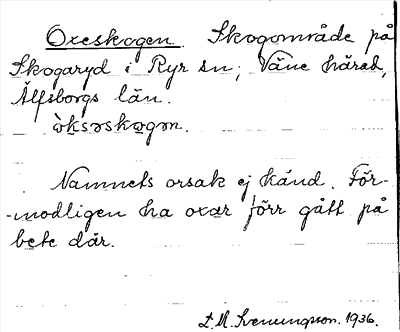 Oxeskogen. Skogområde på
Skogaryd i Ryr sn; Väne härad,
Älfsborgs län.
ò̱ksəskɷgɷn.
Namnets orsak ej känd. För-
-modligen ha oxar förr gått på
bete där.
L. M. Svenungsson. 1936.